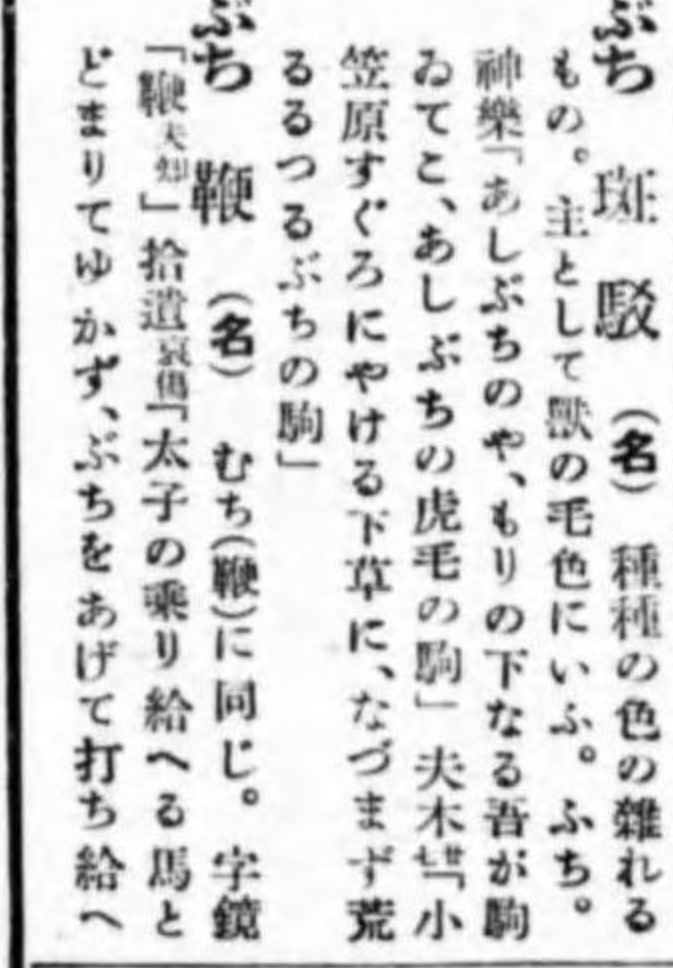 ぶち 斑 駁 (名) 種種の色の雜れる
もの。主として獸の毛色にいふ。ふち。
神樂「あしぶちのや、もりの下なる吾が駒
ゐてこ、あしぶちの虎毛の駒」 夫木廿七「小
笠原すぐろにやける下草に、なづまず荒
るるつるぶちの駒」
ぶち 鞭 (名) むち(鞭)に同じ。 字鏡
「鞭夫知」拾遺哀傷「太子の乘り給へる馬と
どまりてゆかず、ぶちをあげて打ち給へ